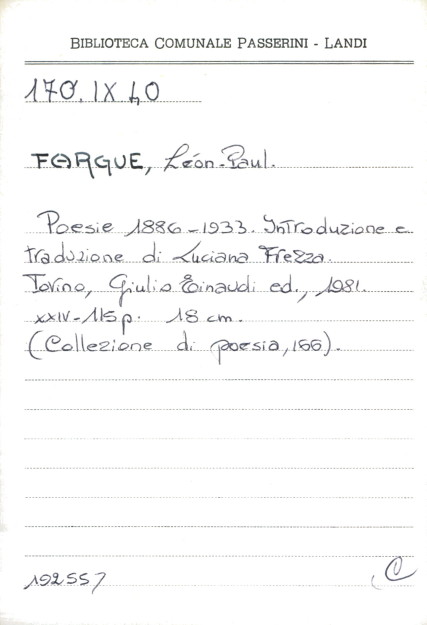 BIBLIOTECA COMUNALE PASSERINI - LANDI
170. IX 40
FARGUE, Léon-Paul.
Poesie 1886-1933. Introduzione e
traduzione di Luciana Frezza.
Torino, Giulio Einaudi ed., 1981.
XXIV-115 p. 18 cm.
(Collezione di poesia, 166).
192557
C